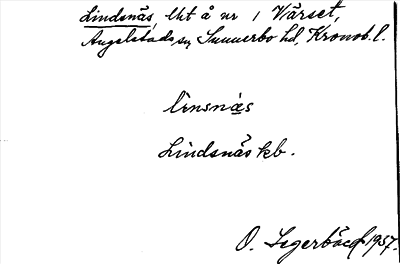 Lindsnäs, lht å nr 1 Värset,
Angelstads sn, Sunnerbo hd, Kronob. l.
linsnäs
Lindsnäs kb.
O. Segerbäck 1957.